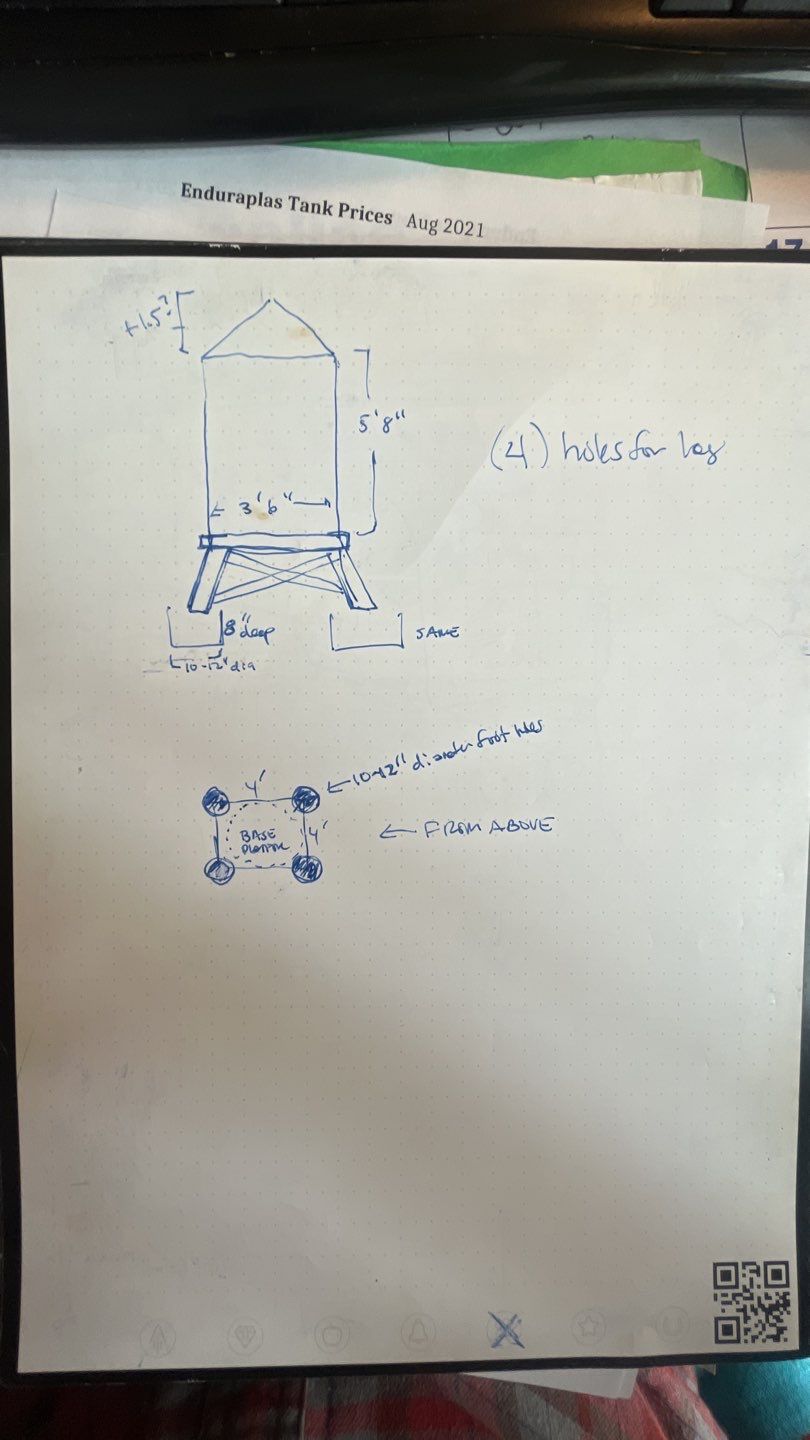 Enduraplas Tank Prices Aug 2021
17
+1.5'?
5'8"
(4) holes for leg
3'6"
8" deep
SAME
10-12" dia
10-12" diameter foot holes
4'
4'
BASE
← FROM ABOVE